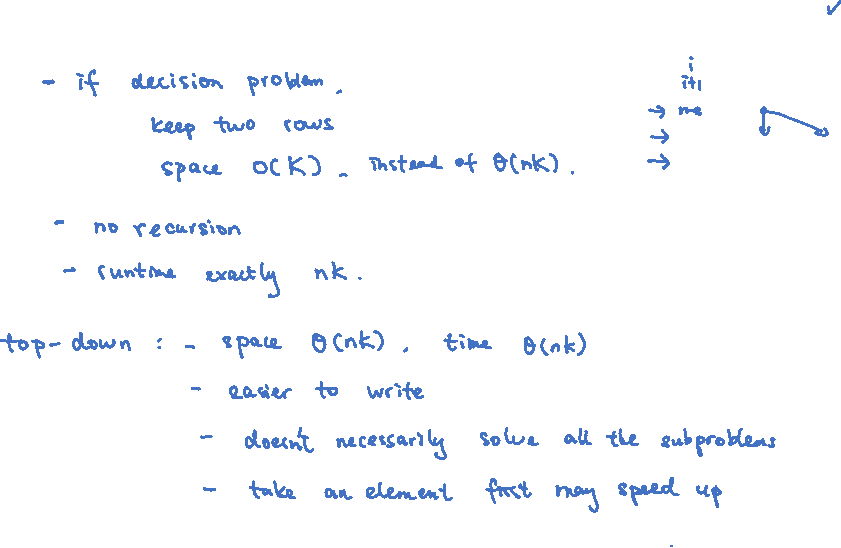 i
- if decision problem.
i+1
keep two rows
→
→
→
space O(K). instead of Θ(nK).
- no recursion
- runtime exactly nk.
top-down : - space Θ(nk). time Θ(nk)
- easier to write
- doesn't necessarily solve all the subproblems
- take an element first may speed up